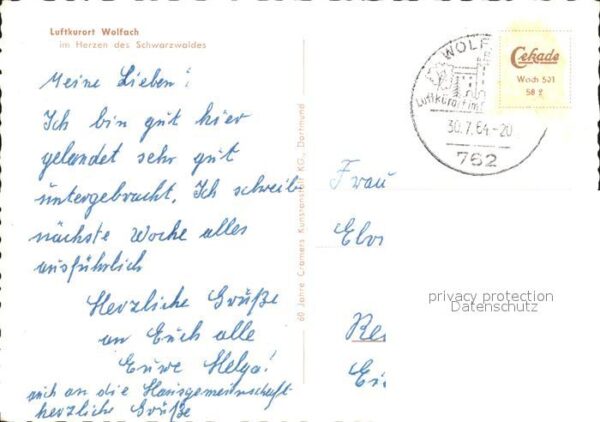 Luftkurort Wolfach
im Herzen des Schwarzwaldes
Meine Lieben!
Ich bin gut hier
gelandet sehr gut
untergebracht. Ich schreibe
nächste Woche alles
ausführlich
Herzliche Grüße
an Euch alle
Euere Helga!
auch an die Hausgemeinschaft
herzliche Grüße
60 Jahre Cramers Kunstanstalt KG., Dortmund
WOLF
Luftkurort im
30.7.64-20
762
Cekade
Wach 501
58 g
Frau
Re
privacy protection
Datenschutz